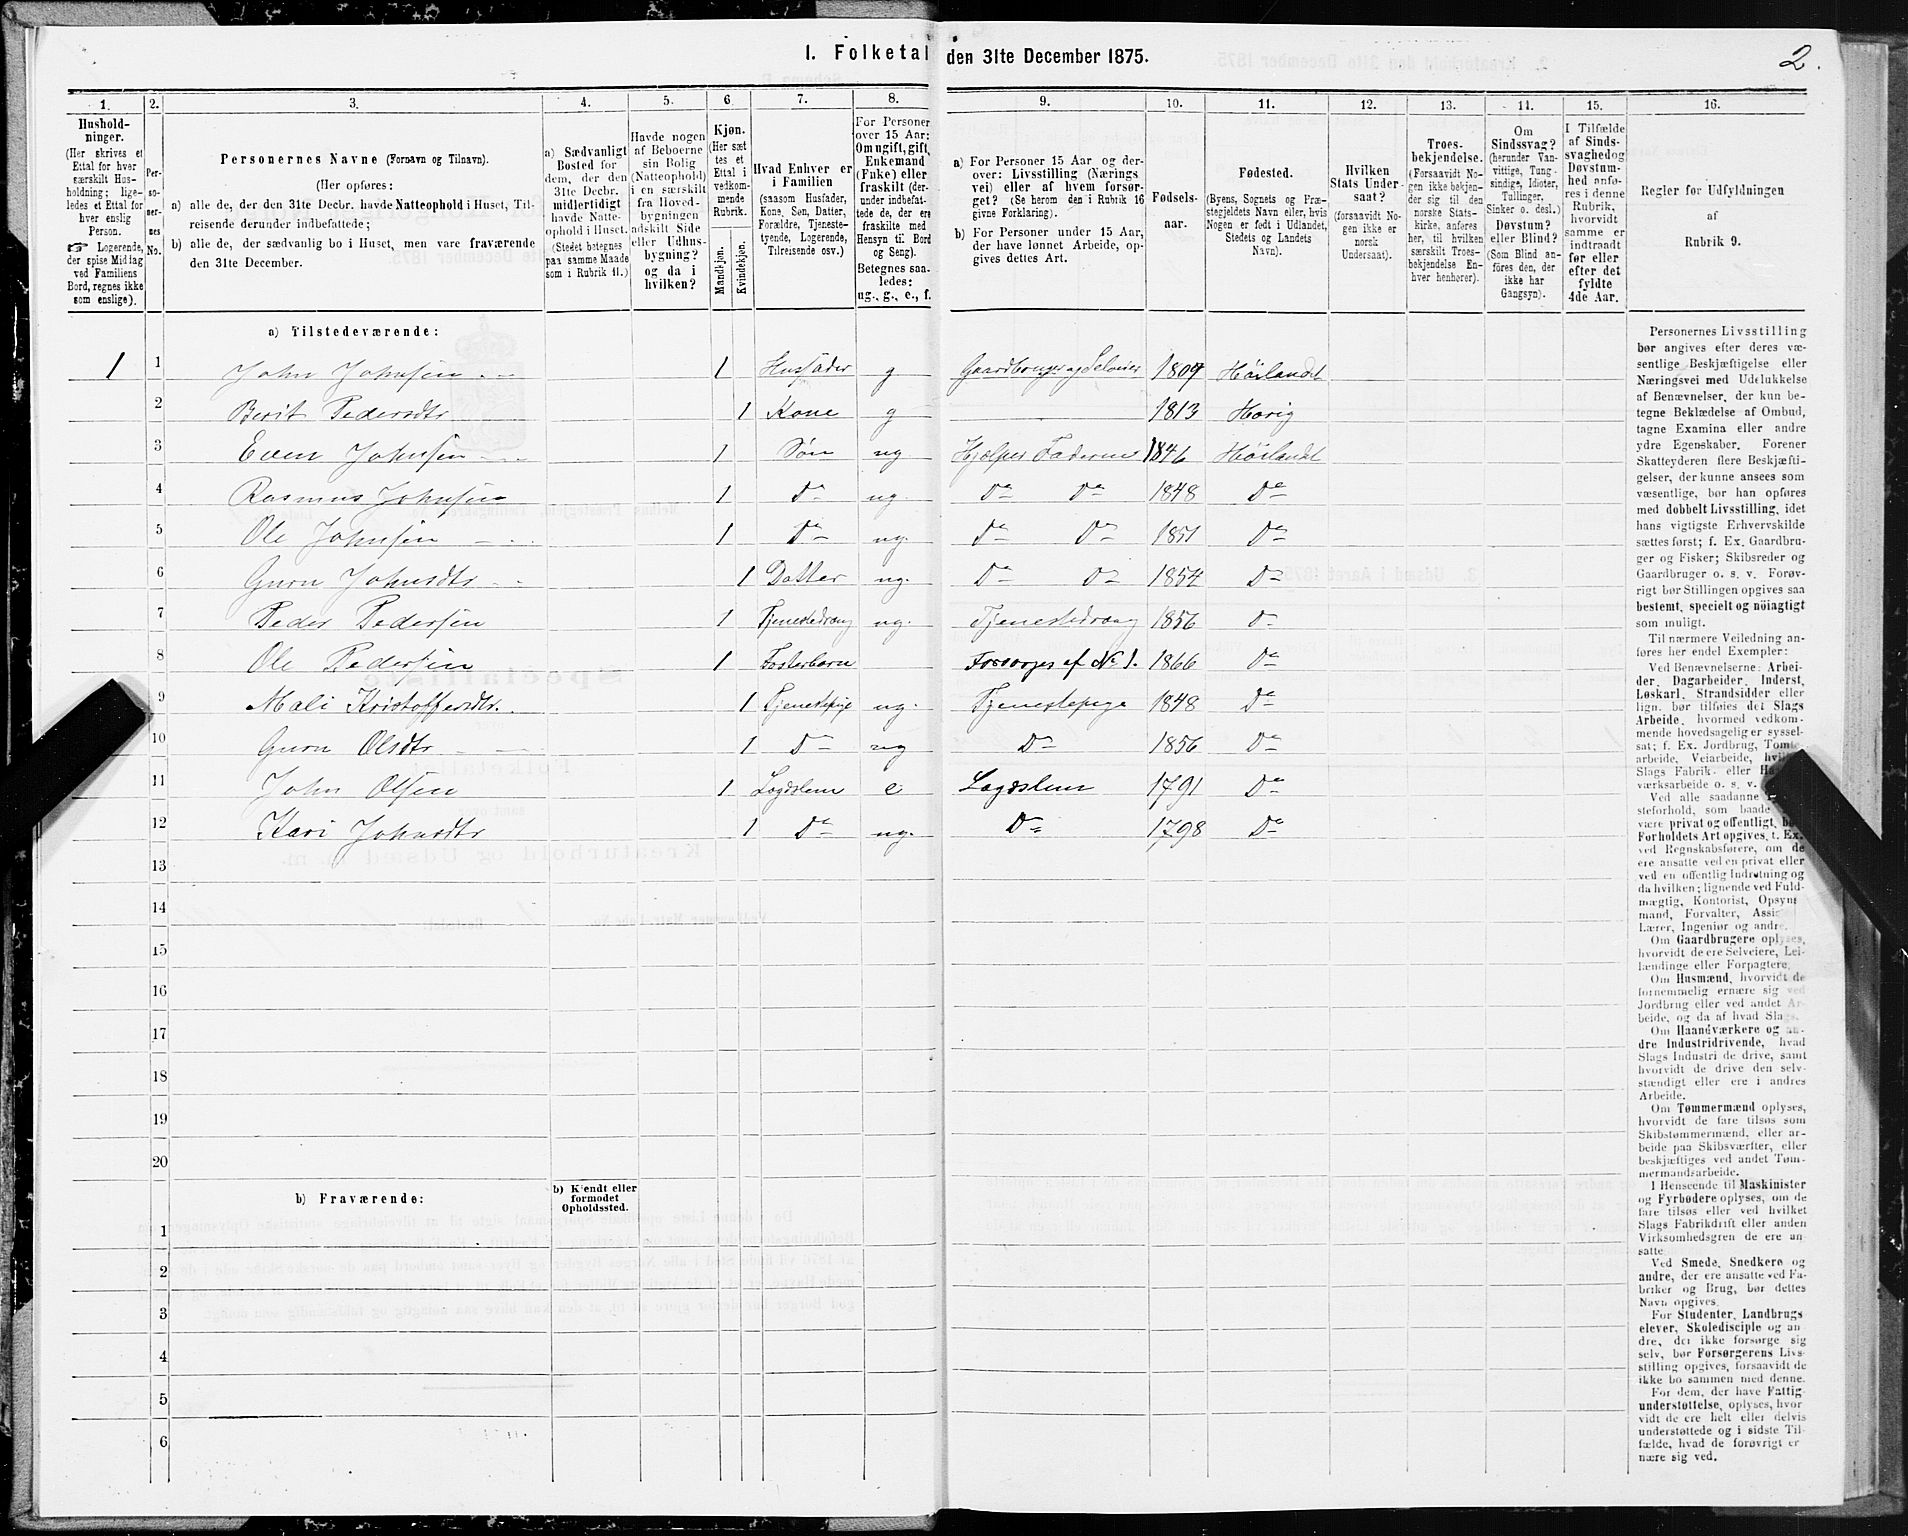 I. Folketal den 31te December 1875.
2.
1. 2. 3. 4. 5. 6 7. 8. 9. 10. 11. 12. 13. 11. 15. 16.
Hushold-
ninger.
(Her skrives et
Ettal for hver
særskilt Hus-
holdning; lige-
ledes et Ettal for
hver enslig
Person.
☞ Logerende,
der spise Middag
ved Familiens
Bord, regnes ikke
som enslige).
Per-
so-
ner-
nes
No.
Personernes Navne (Fornavn og Tilnavn).
(Her opføres:
a) alle de, der den 31te Decbr. havde Natteophold i Huset, Til-
reisende derunder indbefattede;
b) alle de, der sædvanlig bo i Huset, men vare fraværende
den 31te December.
a) Sædvanligt
Bosted for
dem, der den
31te Decbr.
midlertidigt
havde Natte-
ophold i Huset.
(Stedet betegnes
paa samme Maade
som i Rubrik 11.)
Havde nogen
af Beboerne
sin Bolig
(Natteophold)
i en særskilt
fra Hoved-
bygningen
adskilt Side
eller Udhus-
bygning?
og da i
hvilken?
Kjøn.
(Her sæt
tes et
Ettal i
vedkom-
mende
Rubrik.
Mandkjøn.
Kvindekjøn.
Hvad Enhver er
i Familien
(saasom Husfader,
Kone, Søn, Datter,
Forældre, Tjeneste-
tyende, Logerende,
Tilreisende osv.)
For Personer
over 15 Aar:
Om ugift, gift,
Enkemand
(Enke) eller
fraskilt (der-
under indbefat-
tede de, der ere
fraskilte med
Hensyn til Bord
og Seng).
Betegnes saa-
ledes:
ug., g., e., f.
a) For Personer 15 Aar og der-
over: Livsstilling (Nærings
vei) eller af hvem forsør-
get? (Se herom den i Rubrik 16
givne Forklaring).
b) For Personer under 15 Aar,
der have lønnet Arbeide, op-
gives dettes Art.
Fødsels-
aar.
Fødested.
(Byens, Sognets og Præ-
stegjeldets Navn eller, hvis
Nogen er født i Udlandet,
Stedets og Landets
Navn).
Hvilken
Stats Under-
saat?
(forsaavidt No-
gen ikke er
norsk
Undersaat).
Troes-
bekjendelse.
(Forsaavidt No-
gen ikke bekjen-
der sig til den
norske Stats-
kirke, anføres
her, til hvilken
særskilt Troes-
bekjendelse En-
hver henhører).
Om
Sindssvag?
(herunder Van-
vittige, Tung-
sindige, Idioter,
Tullinger,
Sinker o. desl.)
Døvstum?
eller Blind?
(Som Blind an-
føres den, der
ikke har
Gangsyn).
I Tilfælde
af Sinds-
svaghed og
Døvstum-
hed anfø-
res i denne
Rubrik,
hvorvidt
samme er
indtraadt
før eller
efter det
fyldte
4de Aar.
Regler før Udfyldningen
af
Rubrik 9.
a) Tilstedeværende:
1 1 John Johnsen 1 Husfader g Gaardbruger og Selveier 1809 Höilandet
2 Berit Pedersdtr 1 Kone g 1813 Horig
3 Even Johnsen 1 Søn ug. Hjælper Faderen 1846 Höilandt
4 Rasmus Johnsen 1 Do ug. Do Do 1848 Do
5 Ole Johnsen 1 Do ug. Do Do 1851 Do
6 Guru Johnsdtr 1 Datter ug. Do Do 1854 Do
7 Peder Pedersen 1 Tjenestedreng ug. Tjenestedreng 1856 Do
8 Ole Pedersen 1 Fosterbarn Forsørges af No 1. 1866 Do
9 Mali Kristoffersdtr. 1 Tjenestepige ug. Tjenestepige 1848 Do
10 Guru Olsdtr 1 Do ug Do 1856 Do
11 John Olsen 1 Lægdslem e Lægdslem 1791 Do
12 Kari Johnsdtr 1 Do ug. Do 1798 Do
13
14
15
16
17
18
19
20
b) Fraværende:
b) Kjendt eller
formodet
Opholdssted.
1
2
3
4
5
6
Personernes Livsstilling
bør angives efter deres væ-
sentlige Beskjæftigelse eller
Næringsvei med Udelukkelse
af Benævnelser, der kun be-
tegne Beklædelse af Ombud,
tagne Examina eller andre
ydre Egenskaber. Forener
Skatteyderen flere Beskjæfti-
gelser, der kunne ansees som
væsentlige, bør han opføres
med dobbelt Livsstilling, idet
hans vigtigste Erhvervskilde
sættes først; f. Ex. Gaardbru-
ger og Fisker; Skibsreder og
Gaardbruger o. s. v. Forøv-
rigt bør Stillingen opgives saa
bestemt, specielt og nøiagtigt
som muligt.
Til nærmere Veiledning an-
føres her endel Exempler:
Ved Benævnelserne: Arbei-
der, Dagarbeider, Inderst,
Løskarl, Strandsidder eller
lign. bør tilføies det Slags
Arbeide, hvormed vedkom-
mende hovedsagelig er syssel-
sat; f. Ex. Jordbrug, Tomte-
arbeide, Veiarbeide,
Slags Fabrik- eller
værksarbeide o. s. v.
Ved alle saadanne
steforhold, som baade
være privat og offentligt,
Forholdets Art opgives, t. Ex.
ved Regnskabsførere, om de
ere ansatte ved en privat eller
ved en offentlig Indretning og
da hvilken; lignende ved Fuld-
mægtig, Kontorist, Opsyns
mand, Forvalter,
Lærer, Ingeniør og andre.
Om Gaardbrugere oplyses,
hvorvidt de ere Selveiere, Lei-
lændinge eller Forpagtere.
Om Husmænd, hvorvidt de
fornemmelig ernære sig ved
Jordbrug eller ved andet Ar-
beide, og da af hvad Slags.
Om Haandværkere og an-
dre Industridrivende, hvad
Slags Industri de drive, samt
hvorvidt de drive den selv-
stændigt eller ere i andres
Arbeide.
Om Tømmermænd oplyses,
hvorvidt de fare tilsøs som
Skibstømmermænd, eller ar-
beide paa Skibsværfter, eller
beskjæftiges ved andet Tøm-
mermandsarbeide.
I Henseende til Maskinister
og Fyrbødere oplyses, om de
fare tilsøs eller ved hvilket
Slags Fabrikdrift eller anden
Virksomhedsgren de ere an-
satte.
Ved Smede, Snedkere og
andre, der ere ansatte ved Fa-
briker og Brug, bør dettes
Navn opgives.
For Studenter, Landbrugs
elever, Skoledisciple og an-
dre, der ikke forsørge sig
selv, bør Forsørgerens Livs-
stilling opgives, forsaavidt de
ikke bo sammen med denne.
For dem, der have Fattig-
understøttelse, oplyses, hvor
vidt de ere helt eller delvis
understøttede og i sidste Til-
fælde, hvad de forøvrigt er
nære sig ved.